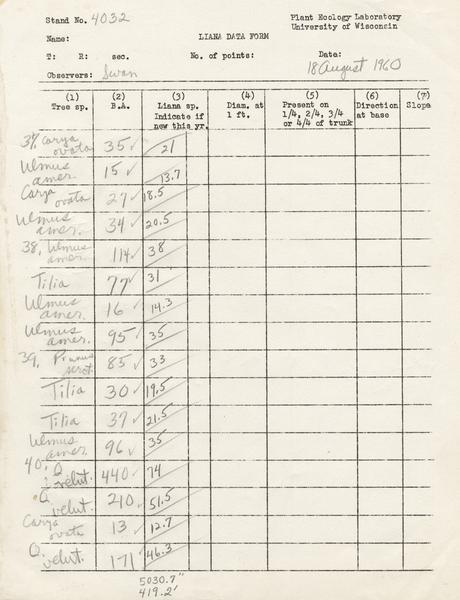 Stand No. 4032
Plant Ecology Laboratory
University of Wisconsin
Name:
LIANA DATA FORM
T: R: sec.
No. of points:
Date:
18 August 1960
Observers: Swan
(1) (2) (3) (4) (5) (6) (7)
Tree sp. B.A. Liana sp. Diam. at Present on Direction Slope
Indicate if 1 ft. 1/4, 2/4, 3/4 at base
new this yr. or 4/4 of trunk
37. Carya ovata 35 ✓ 21
Ulmus amer. 15 ✓ 13.7
Carya ovata 27 ✓ 18.5
Ulmus amer. 34 ✓ 20.5
38. Ulmus amer. 114 ✓ 38
Tilia 77 ✓ 31
Ulmus amer. 16 ✓ 14.3
Ulmus amer. 95 ✓ 35
39. Prunus serot. 85 ✓ 33
Tilia 30 ✓ 19.5
Tilia 37 ✓ 21.5
Ulmus amer. 96 ✓ 35
40. Q. velut. 440 ✓ 74
Q. velut. 210 ✓ 51.5
Carya ovata 13 ✓ 12.7
Q. velut. 171 ✓ 46.3
5030.7"
419.2'